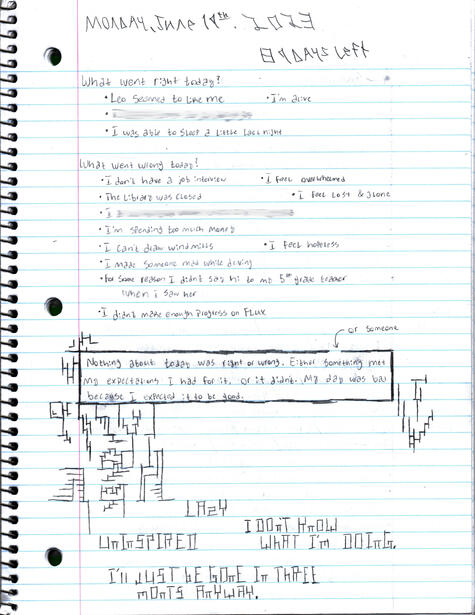 MONDAY, June 19th. 2023
89 DAYS Left
What went right today?
• Leo seemed to like me
• I'm alive
• I was able to sleep a little last night
What went wrong today?
• I don't have a job interview
• I feel overwhelmed
• The library was closed
• I feel lost & alone
• I
• I'm spending too much money
• I can't draw windmills
• I feel hopeless
• I made someone mad while driving
• For some reason I didn't say hi to my 5th grade teacher
when I saw her
• I didn't make enough progress on FLUX
or someone
Nothing about today was right or wrong. Either something met
my expectations I had for it, or it didn't. My day was bad
because I expected it to be good.
LAZY
I DONT KNOW
UNINSPIRED
WHAT I'M DOING.
I'll JUST BE GONE IN THREE
MONTS ANYWAY.